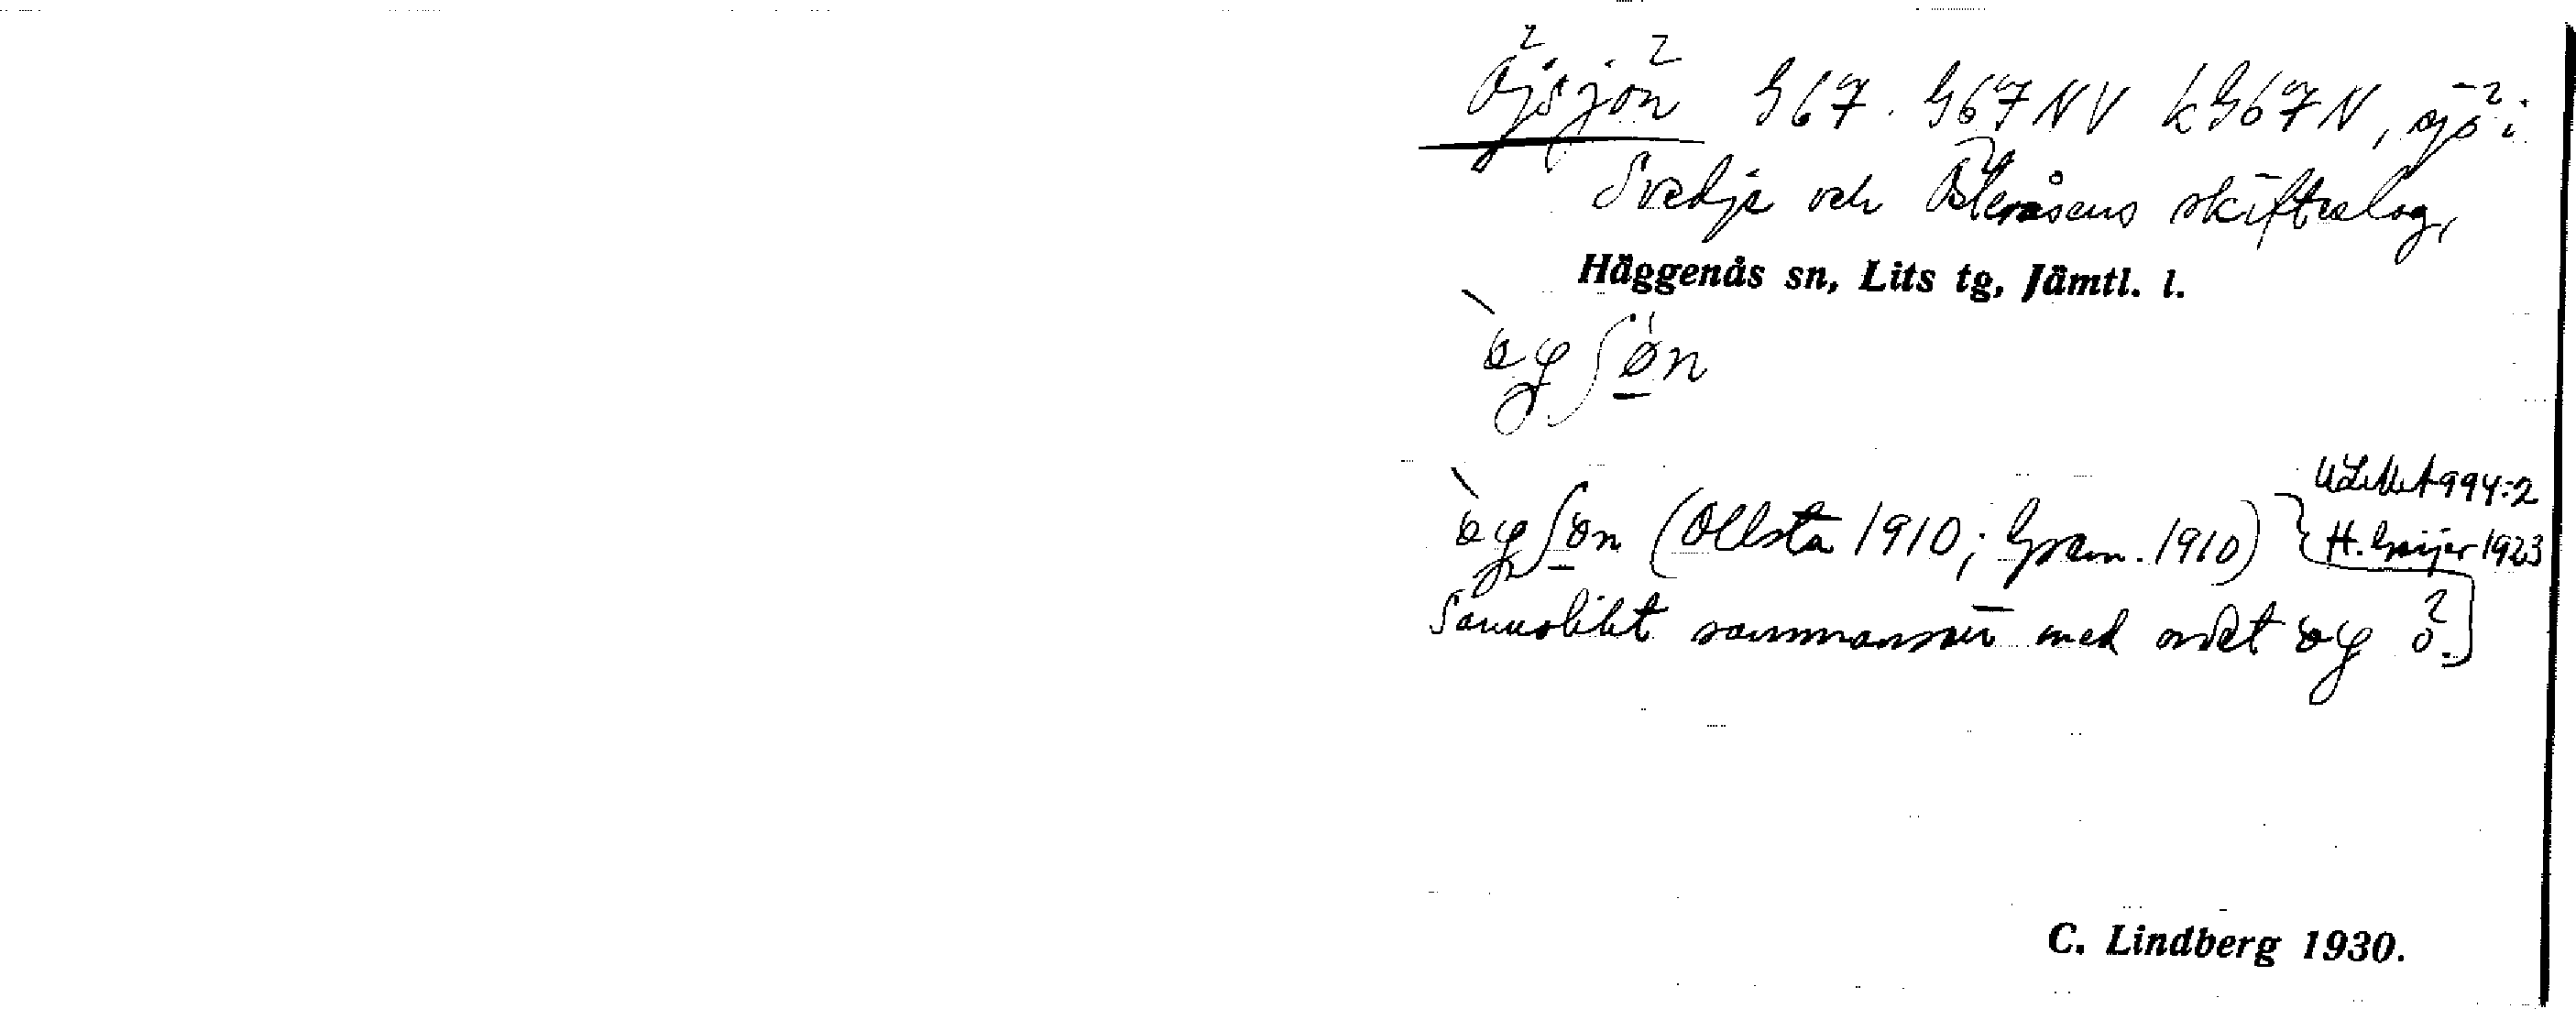 Öjsjön G67. G67NV kG67N, sjö i
Svedje och Österåsens skifteslag,
Häggenås sn, Lits tg, Jämtl. l.
(Ollsta 1910; Gran. 1910)
ULMA 994:2
H. Geijer 1923
Sannolikt sammansatt med ordet
C. Lindberg 1930.